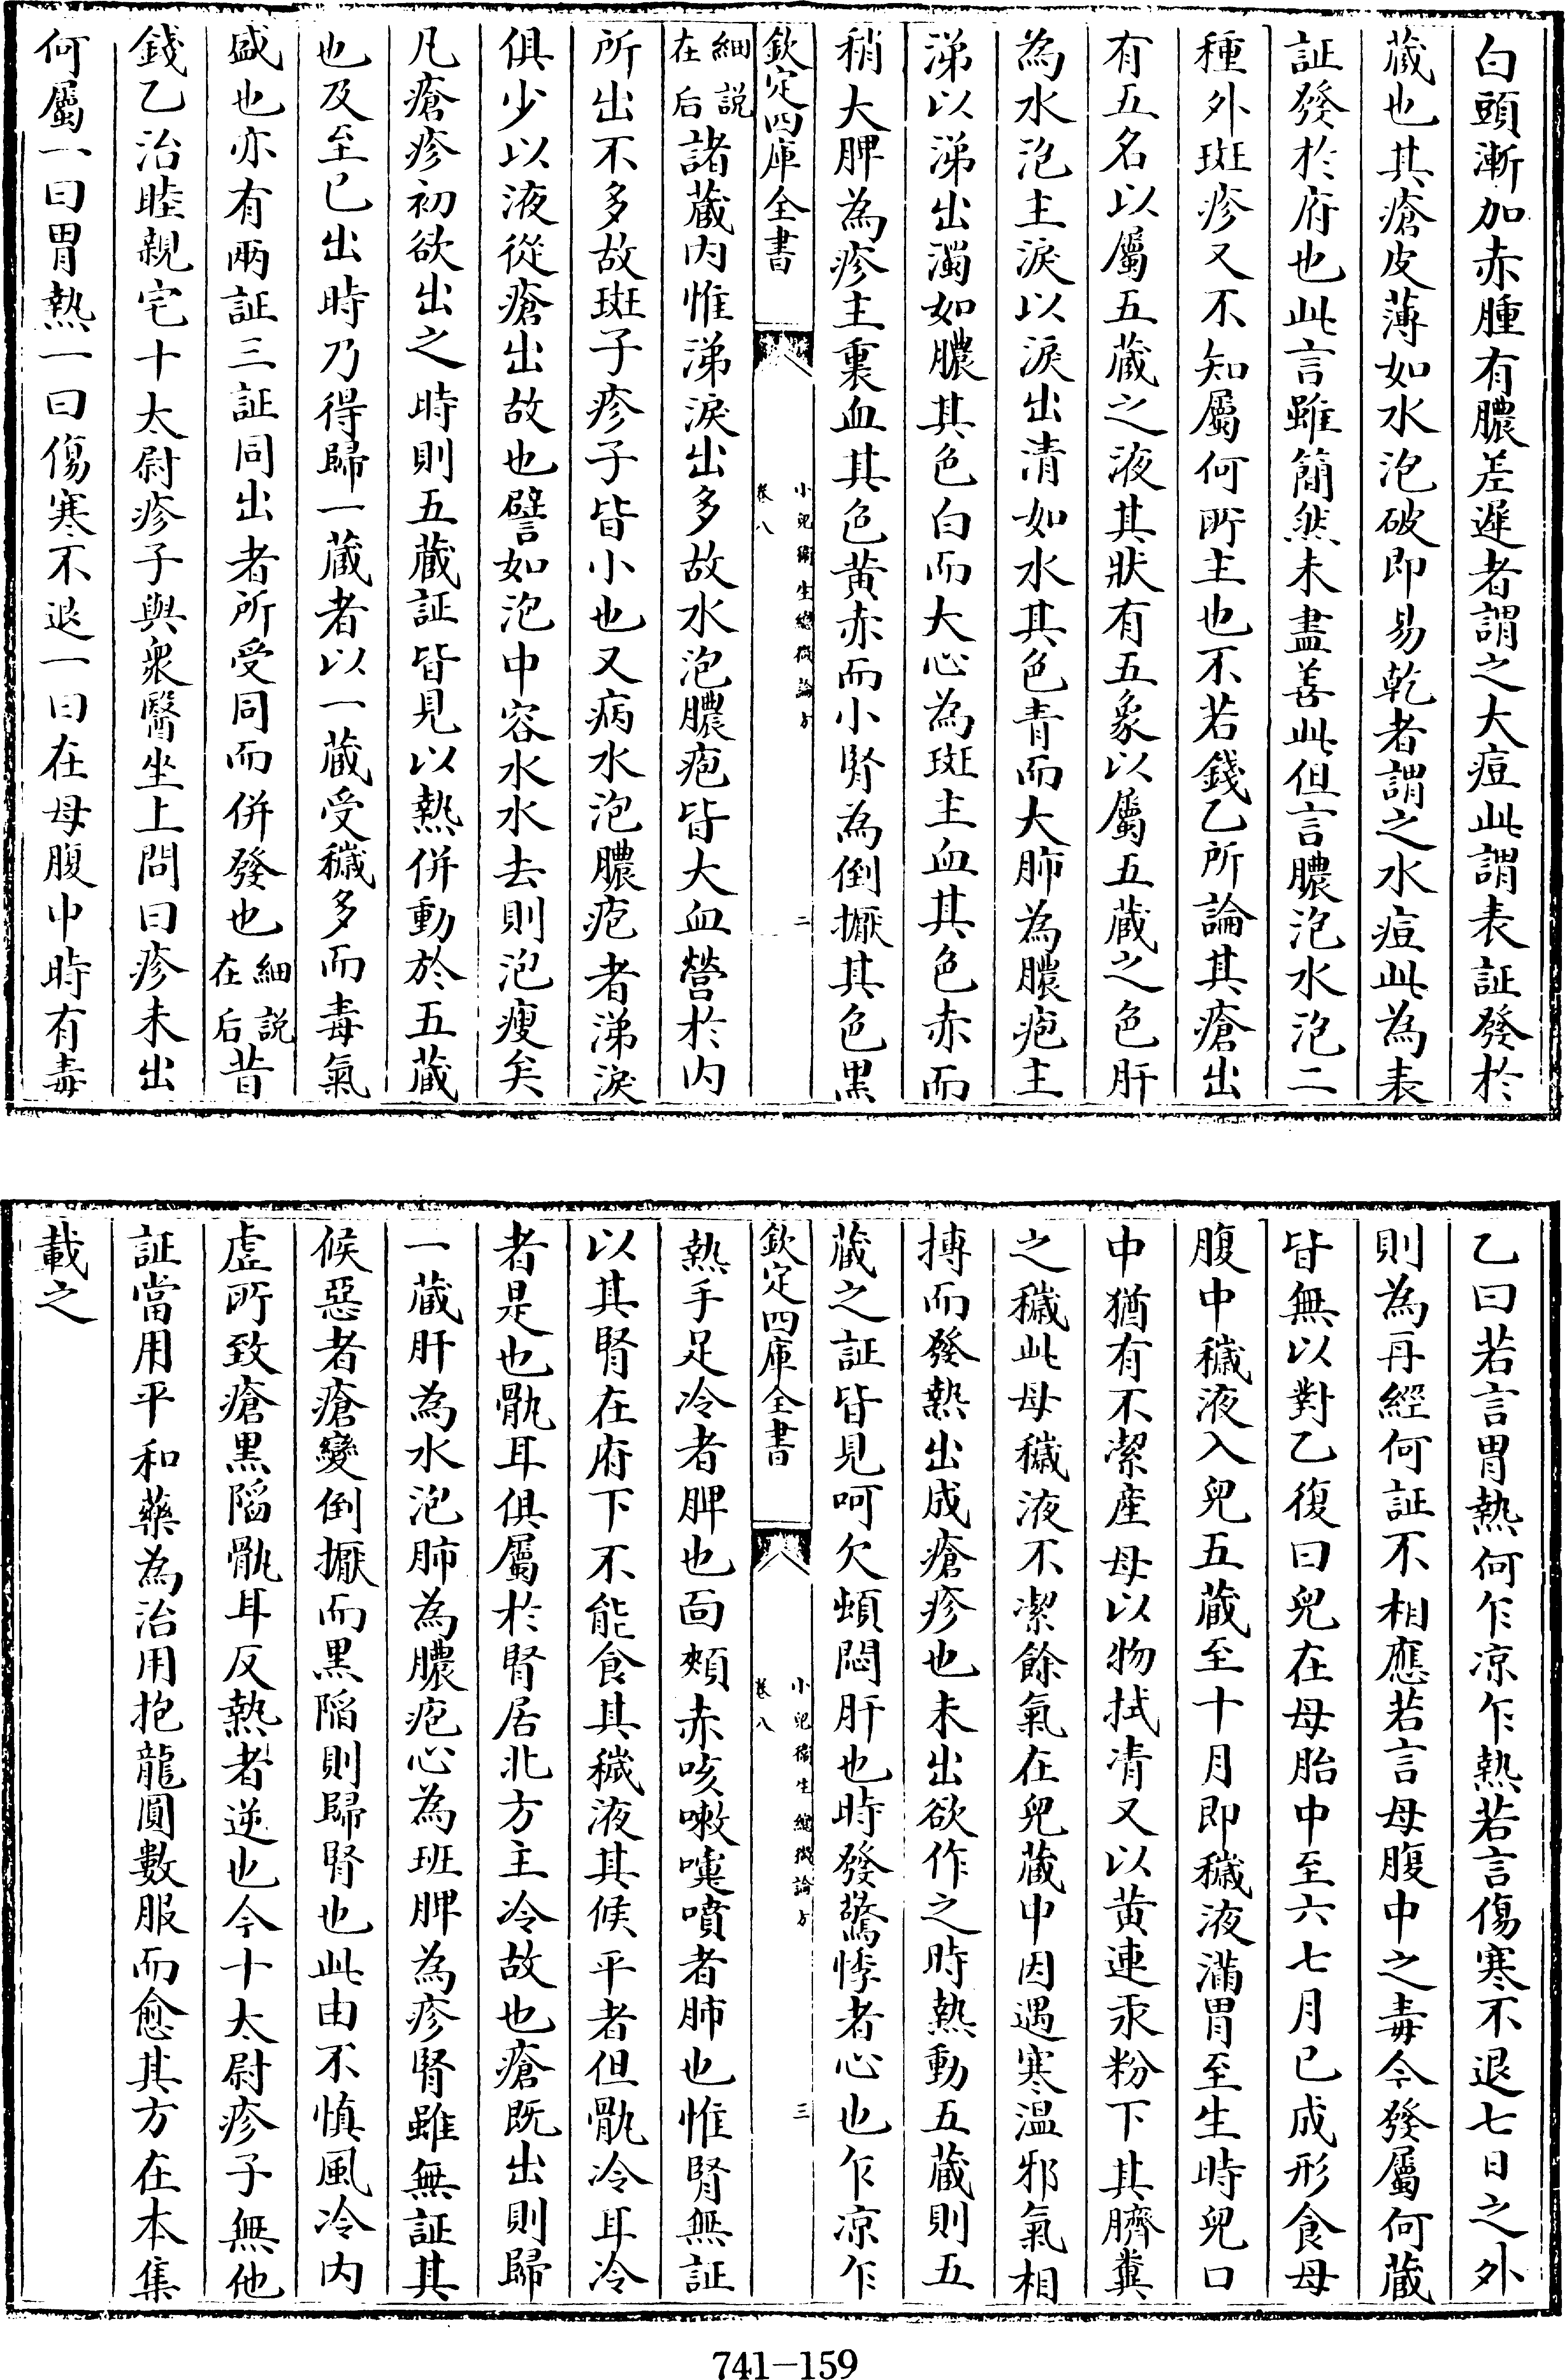 白頭漸加赤腫有膿差遲者謂之大痘此謂表証發於
蔵也其瘡皮薄如水泡破即易乾者謂之水痘此為表
証發於府也此言雖簡然未盡善此但言膿泡水泡二
種外斑疹又不知屬何所主也不若錢乙所論其瘡出
有五名以屬五蔵之液其狀有五象以屬五蔵之色肝
為水泡主淚以淚出清如水其色青而大肺為膿疱主
涕以涕出濁如膿其色白而大心為斑主血其色赤而
稍大脾為疹主裏血其色黃赤而小腎為倒擫其色黑
欽定四庫全書 卷八 小兒衛生總微論方 二
細説在后諸蔵内惟涕淚出多故水泡膿疱皆大血營於内
所出不多故斑子疹子皆小也又病水泡膿疱者涕淚
俱少以液從瘡出故也譬如泡中容水水去則泡瘦矣
凡瘡疹初欲出之時則五蔵証皆見以熱併動於五蔵
也及至已出時乃得歸一蔵者以一蔵受穢多而毒氣
盛也亦有兩証三証同出者所受同而併發也細説在后昔
錢乙治睦親宅十太尉疹子與衆醫坐上問曰疹未出
何屬一曰胃熱一曰傷寒不退一曰在母腹中時有毒
乙曰若言胃熱何乍凉乍熱若言傷寒不退七日之外
則為再經何証不相應若言母腹中之毒今發屬何蔵
皆無以對乙復曰兒在母胎中至六七月已成形食母
腹中穢液入兒五蔵至十月即穢液滿胃至生時兒口
中猶有不潔産母以物拭凊又以黄連汞粉下其臍糞
之穢此母穢液不潔餘氣在兒蔵中因遇寒温邪氣相
搏而發熱出成瘡疹也未出欲作之時熱動五蔵則五
蔵之証皆見呵欠頓悶肝也時發驚悸者心也乍凉乍
欽定四庫全書 卷八 小兒衛生總微論方 三
熱手足冷者脾也面頰赤咳嗽嚏噴者肺也惟腎無証
以其腎在府下不能食其穢液其候平者但骩冷耳冷
者是也骩耳俱屬於腎居北方主冷故也瘡既出則歸
一蔵肝為水泡肺為膿疱心為班脾為疹腎雖無証其
候惡者瘡變倒擫而黑陷則歸腎也此由不慎風冷内
虛所致瘡黑陷骩耳反熱者逆也今十太尉疹子無他
証當用平和藥為治用抱龍圓數服而愈其方在本集
載之
741-159